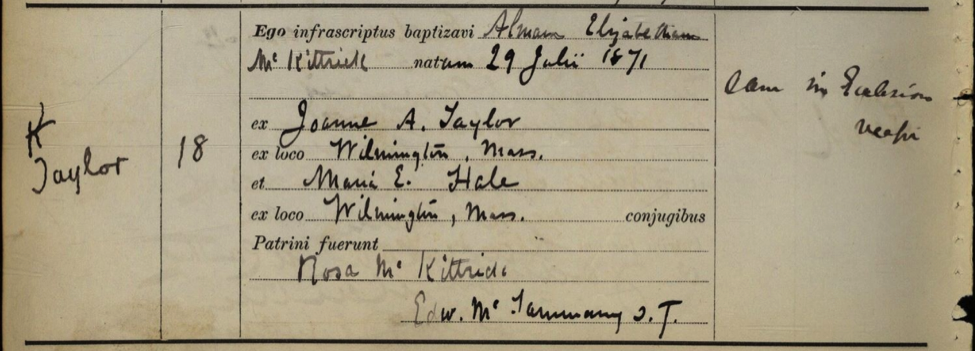 Ego infrascriptus baptizavi Almam Elizabetham
Mc Kittrick natam 29 Julii 1871
K
Taylor
18
ex Joanne A. Taylor
ex loco Wilmington, Mass.
et Maria E. Hale
ex loco Wilmington, Mass. conjugibus
Patrini fuerunt
Rosa Mc Kittrick
Edw. Mc
Eam in Ecclesiam